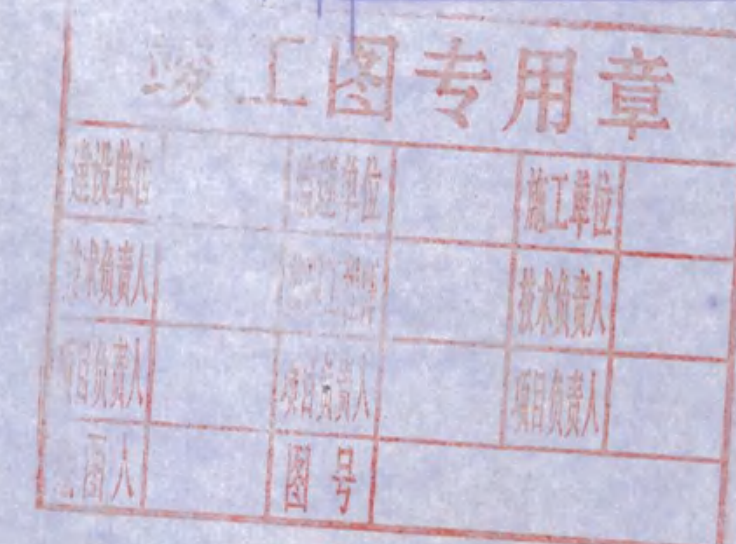 竣工图专用章
建设单位 监理单位 施工单位
技术负责人 监理工程师 技术负责人
项目负责人 项目负责人 项目负责人
图人 图号